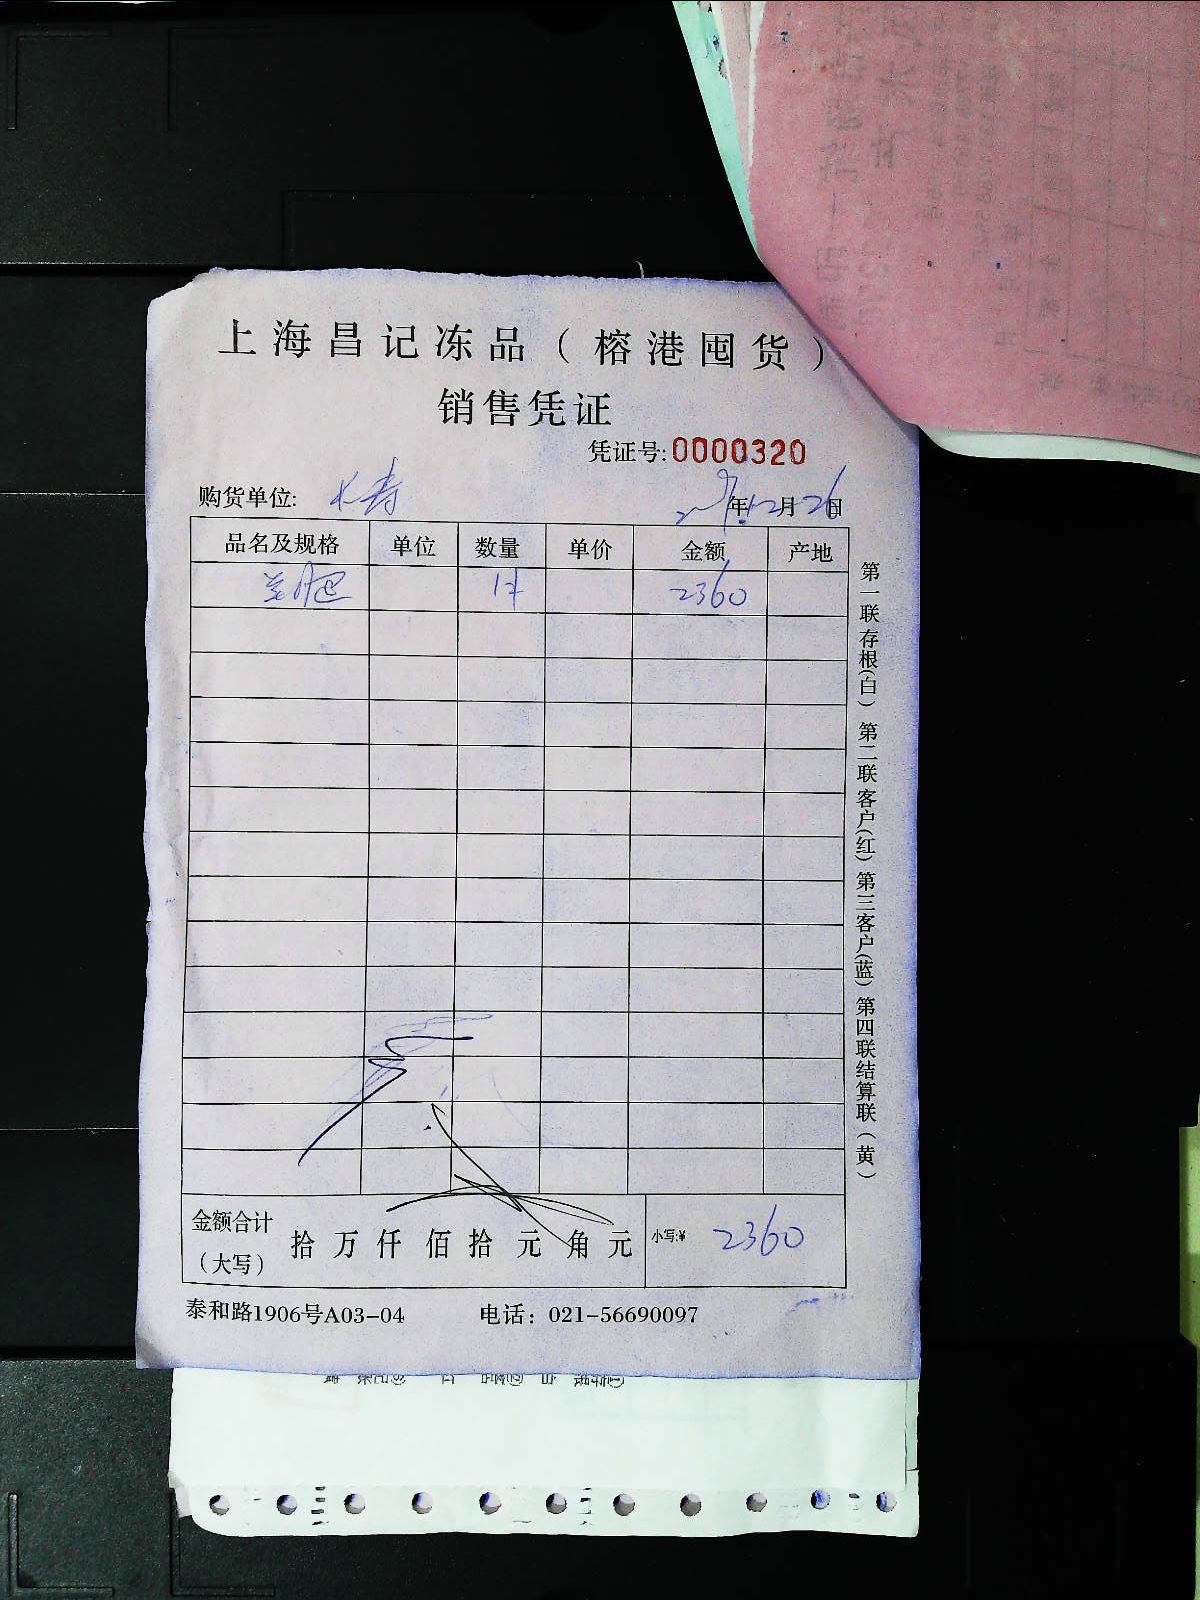 上海昌记冻品（榕港囤货）
销售凭证
凭证号:0000320
购货单位: 长寿 年12月26日
品名及规格 单位 数量 单价 金额 产地
2360
金额合计（大写） 拾 万 仟 佰 拾 元 角 元 小写:¥ 2360
泰和路1906号A03-04 电话：021-56690097
第一联存根(白) 第二联客户(红) 第三客户(蓝) 第四联结算联(黄)